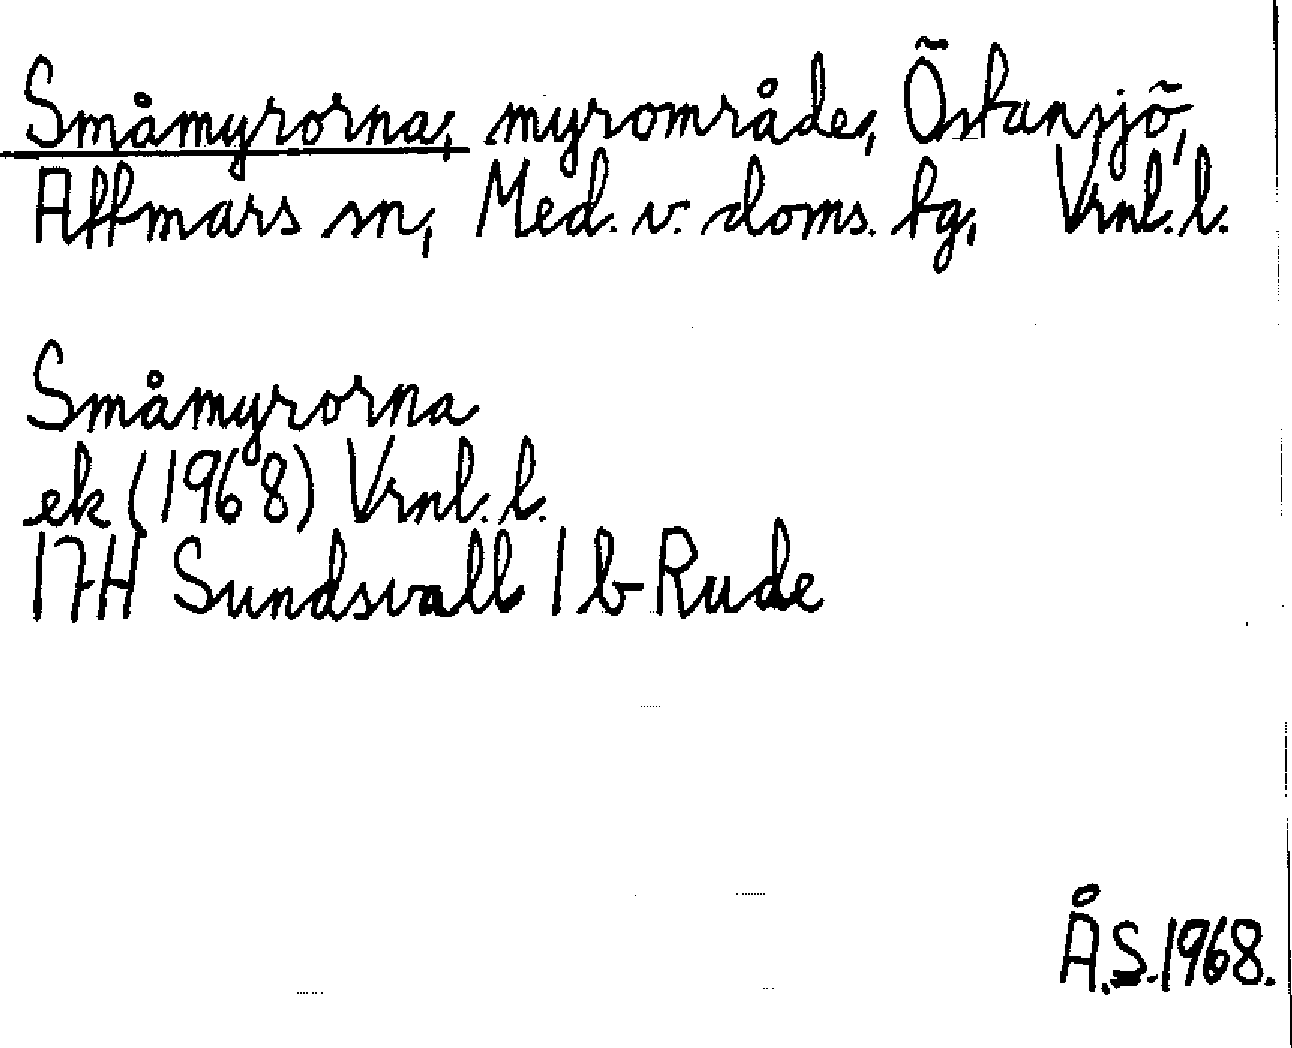 Småmyrorna, myrområde, Östansjö,
Attmars sn, Med. v. doms. tg, Vrnl. l.
Småmyrorna
ek (1968) Vrnl. l.
17H Sundsvall 1 b Rude
Å.S. 1968.